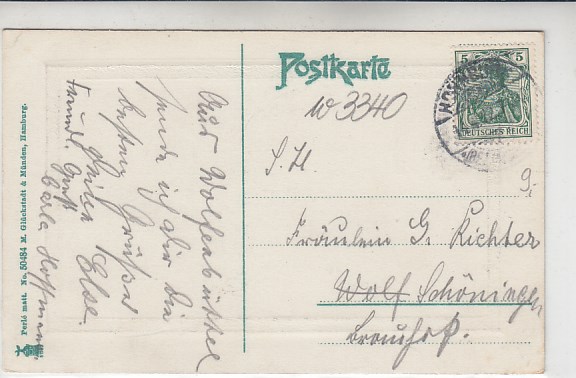 Postkarte
w 3340
Aus Wolfenbüttel
sende ich dir die
besten Grüße
Deine Else.
freundl. Gruß
Carla Hoffmann
S. H.
Fräulein G. Richter
Wolf Schöningen
5 5
DEUTSCHES REICH
9,-
Perlé matt. No. 50484 M. Glückstadt & Münden, Hamburg.